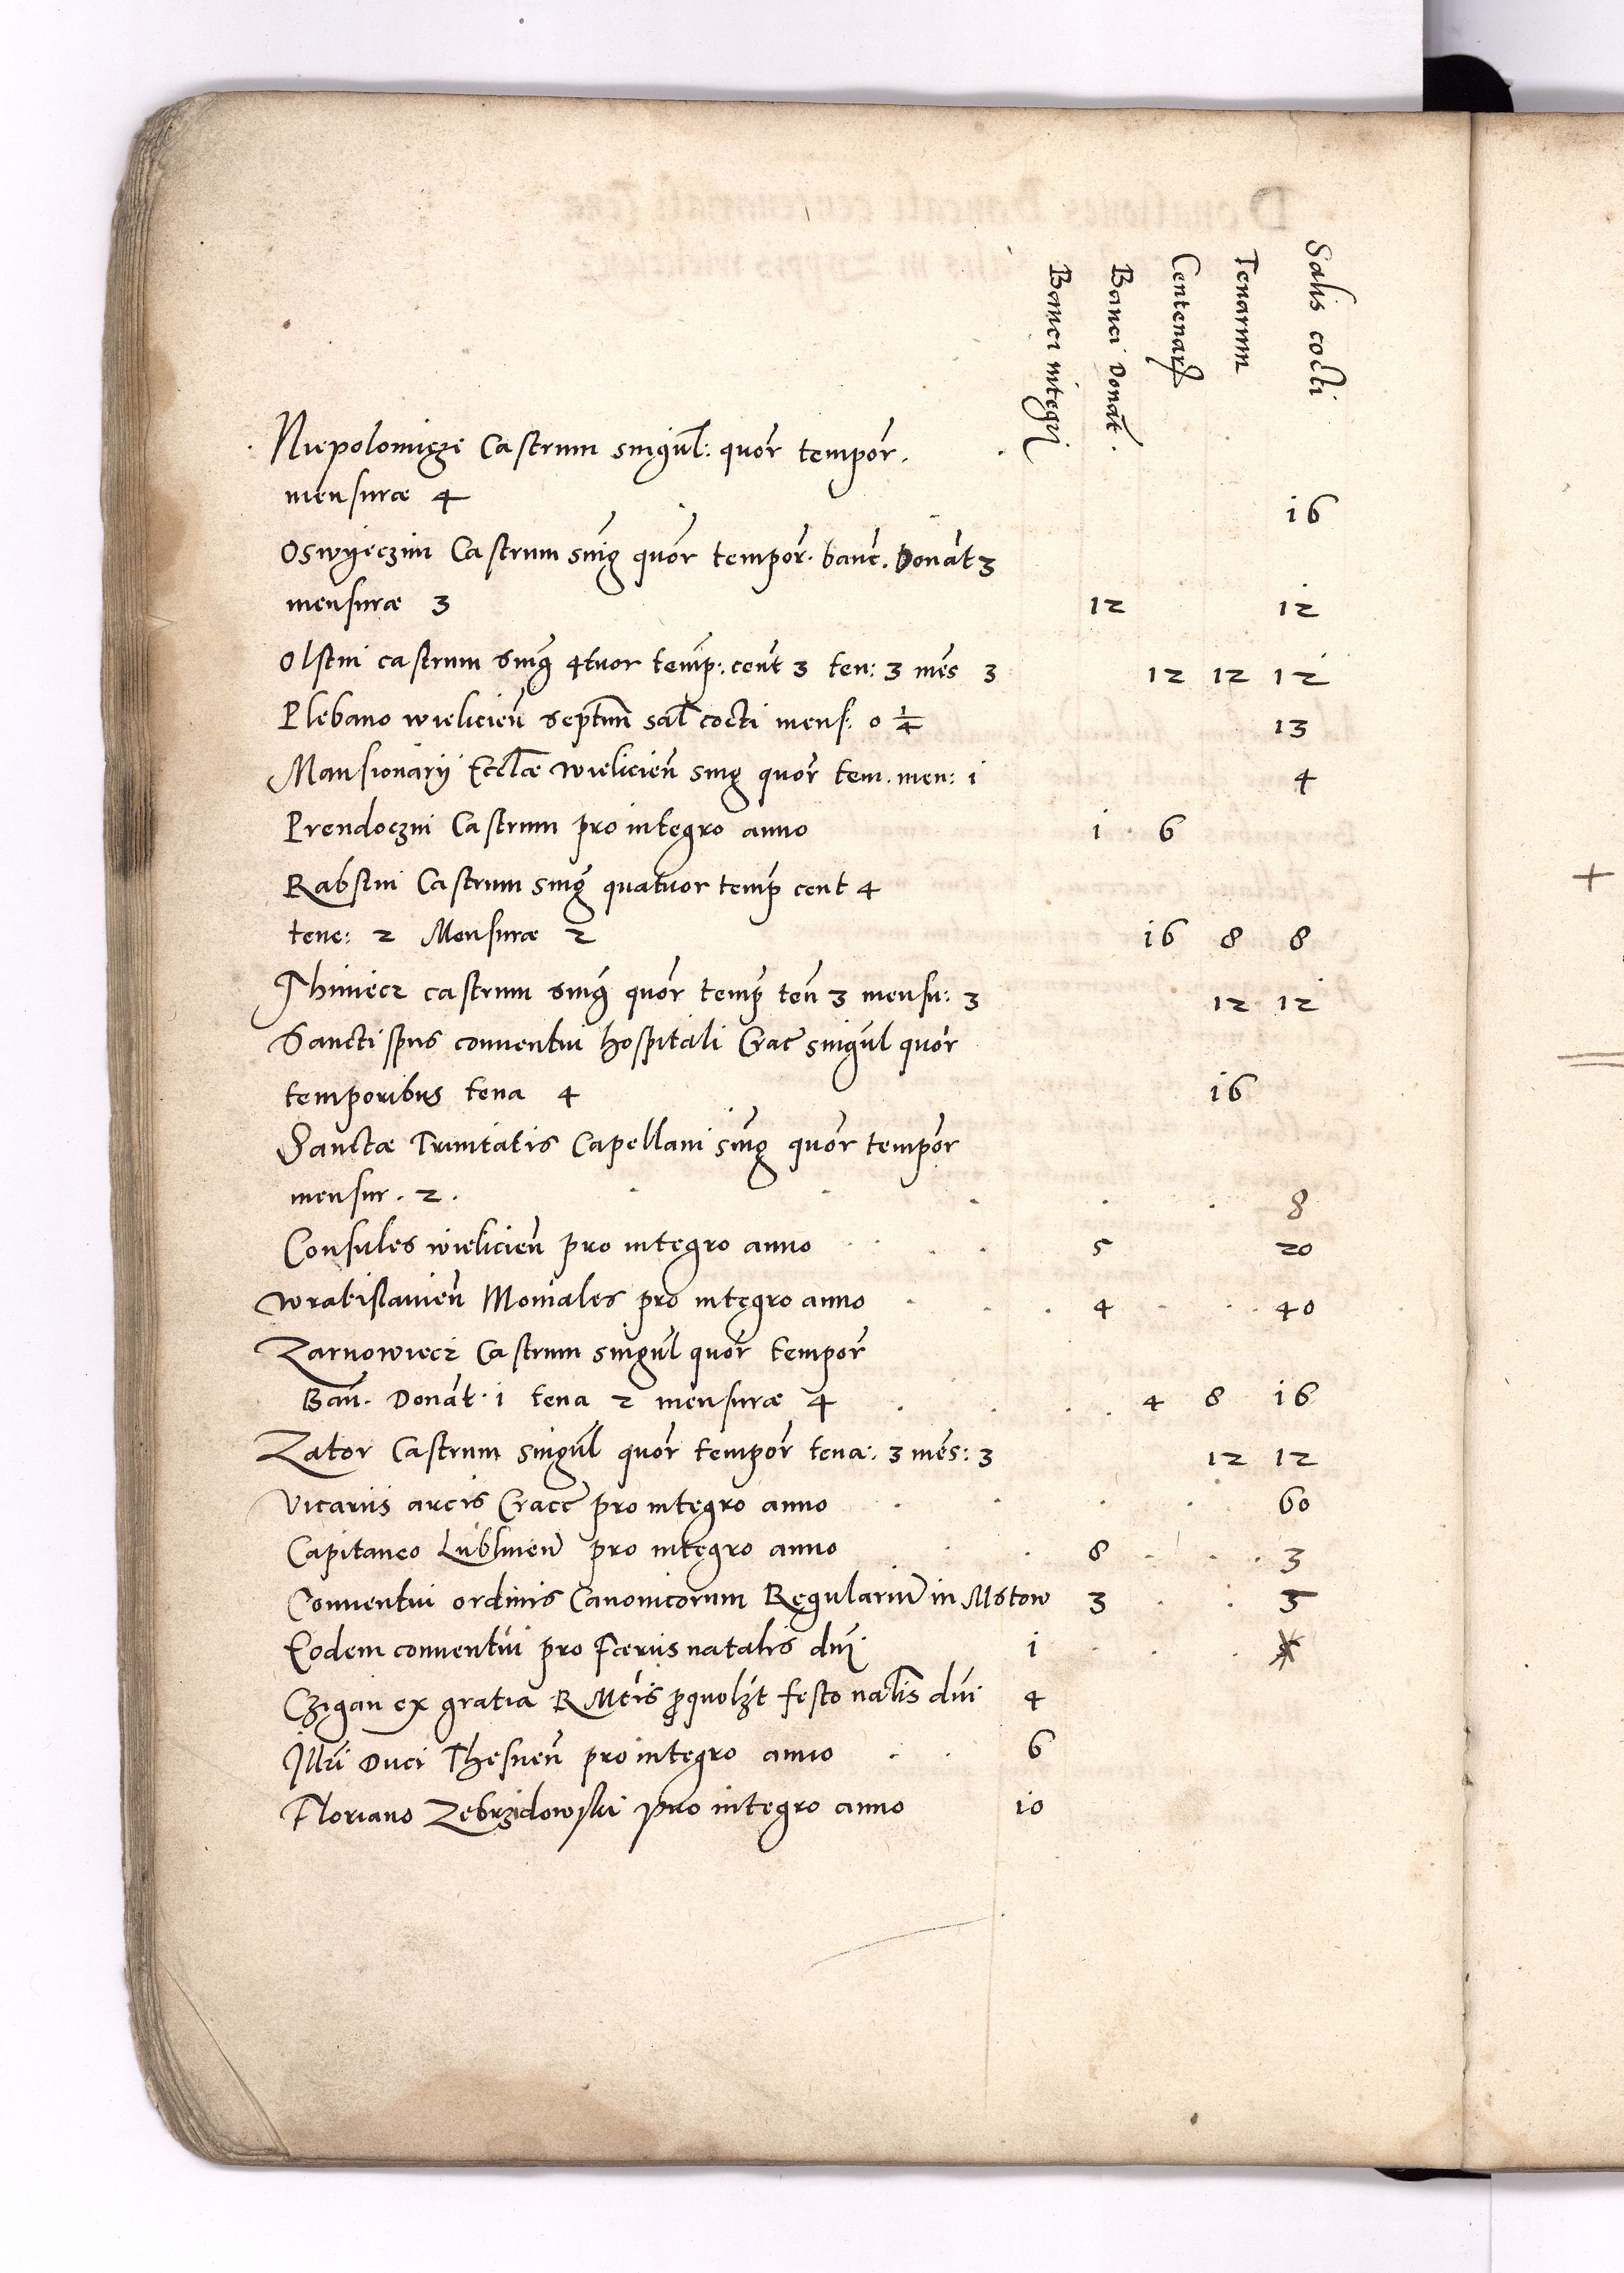 Banci integri Banci Donat. Centenar Tenarum Salis cocti
Niepolomicze Castrum singul: quor tempor.
mensuræ 4 16
Oswyeczim Castrum sing quor tempor. banc. Donat 3
mensuræ 3 12 12
Olstin castrum sing 4tuor temp: cent 3 ten: 3 mes 3 12 12 12
Plebano wielicien septim sal cocti mens: 0 1/4 13
Mansionarij Eccliæ wielicien sing quor tem. men: i 4
Prendoczin Castrum pro integro anno i 6
Rabstin Castrum sing quatuor temp cent 4
tene: 2 Mensuræ 2 16 8 8
Thiniecz castrum sing quor temp ten 3 mensu: 3 12 12
Sancti spus conuentui hospitali Crac singul quor
temporibus tena 4 16
Sanctæ Trinitatis Capellani sing quor tempor
mensur. 2. 8
Consules wielicien pro integro anno 5 20
Wratislauien Moniales pro integro anno 4 40
Zarnowiecz Castrum singul quor tempor
Ban. Donat. i tena 2 mensuræ 4 4 8 16
Zator Castrum singul quor tempor tena: 3 mes: 3 12 12
Vicariis arcis Cracc pro integro anno 60
Capitaneo Lublinen pro integro anno 8 3
Conuentui ordinis Canonicorum Regularium in Mstow 3 5
Eodem conuentui pro Fœriis natalis dni i
Czigan ex gratia R Mtis festo natlis dni 4
Illri Duci Thesnen pro integro anno 6
Floriano Zebrzidowski pro integro anno 10